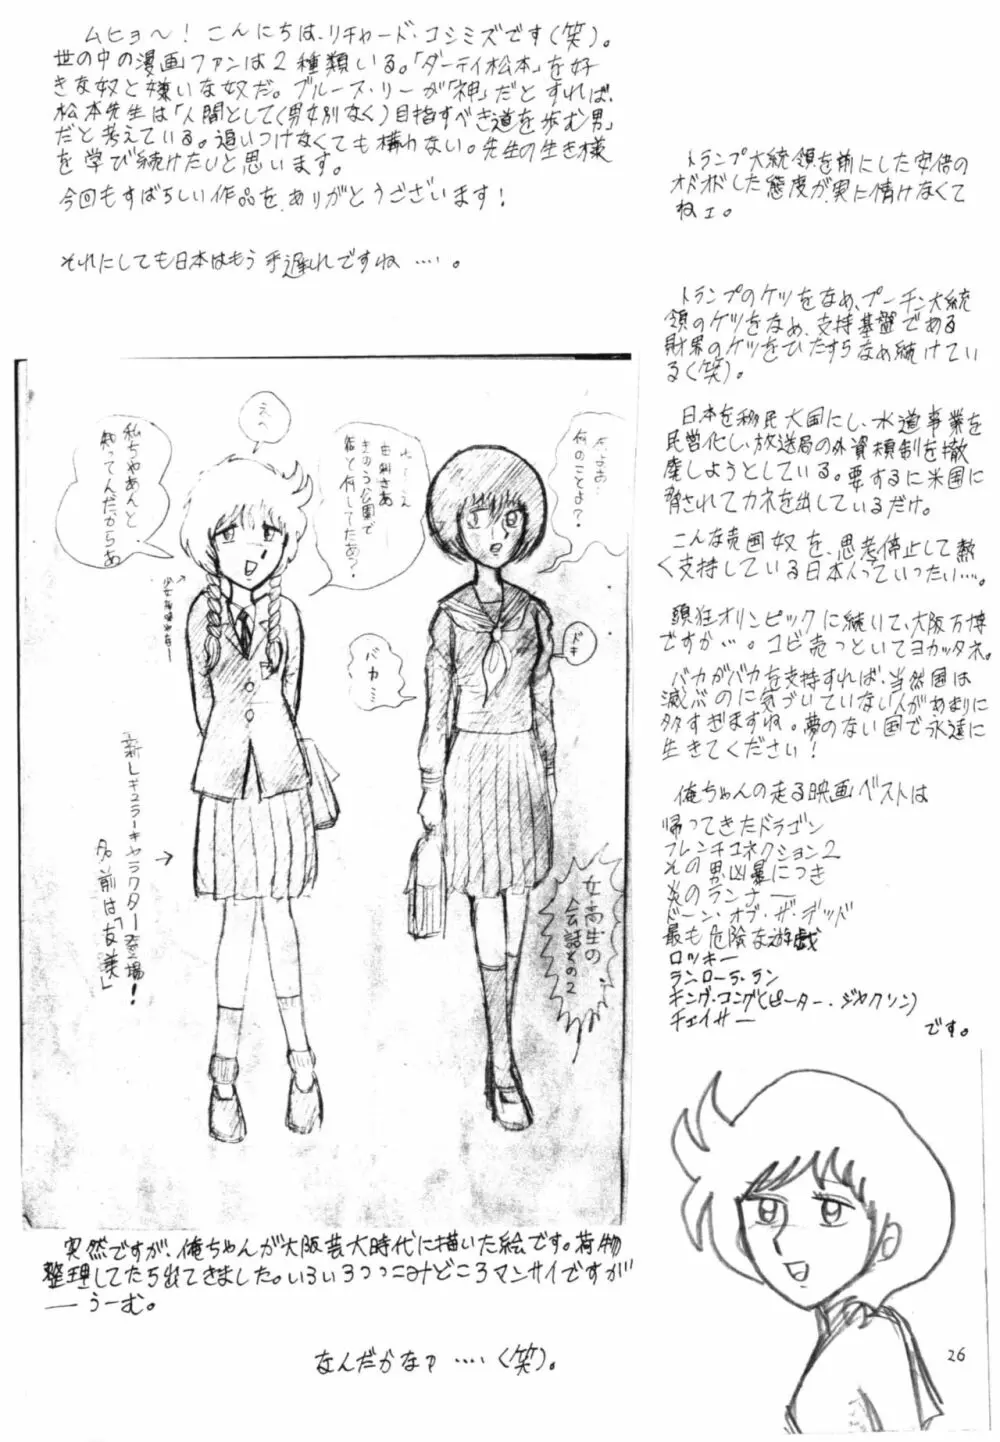 ムヒョ〜！こんにちは、リチャード・コシミズです(笑)。
世の中の漫画ファンは2種類いる。「ダーティ松本」を好
きな奴と嫌いな奴だ。ブルース・リーが「神」だとすれば、
松本先生は「人間として(男女別なく)目指すべき道を歩む男」
だと考えている。追いつけなくても構わない。先生の生き様
を学び続けたいと思います。
今回もすばらしい作品を、ありがとうございます！
それにしても日本はもう手遅れですね……。
トランプ大統領を前にした安倍の
オドオドした態度が、実に情けなくて
ねェ。
トランプのケツをなめ、プーチン大統
領のケツをなめ、支持基盤である
財界のケツをひたすらなめ続けてい
る(笑)。
日本を移民大国にし、水道事業を
民営化し、放送局の外資規制を撤
廃しようとしている。要するに米国に
脅されてカネを出しているだけ。
こんな売国奴を、思考停止して熱
く支持している日本人っていったい…。
頭狂オリンピックに続いて、大阪万博
ですか…。コビ売っといてヨカッタネ。
バカがバカを支持すれば、当然国は
滅ぶのに気づいていない人があまりに
多すぎますね。夢のない国で永遠に
生きてください！
俺ちゃんの走る映画ベストは
帰ってきたドラゴン
フレンチコネクション2
その男、凶暴につき
炎のランナー
ドーン・オブ・ザ・デッド
最も危険な遊戯
ロッキー
ラン・ローラ・ラン
キング・コング(ピーター・ジャクソン)
チェイサー
です。
何のことよ？
きのう公園で
何してたあ？
えへ
私ちゃあんと
知ってんだからあ
ドキ
バカ…
新レギュラーキャラクター登場！
名前は「友美」
女高生の
会話その2
突然ですが、俺ちゃんが大阪芸大時代に描いた絵です。荷物
整理してたら出てきました。いろいろつっこみどころマンサイですが
―うーむ。
なんだかなァ……(笑)。
26